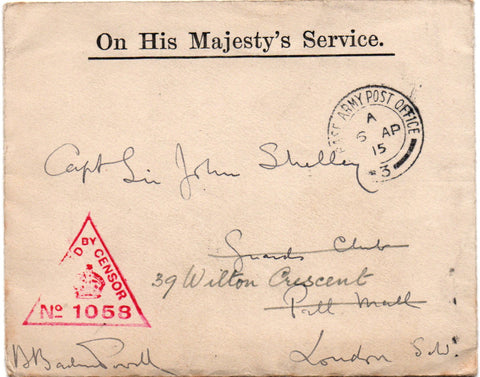 On His Majesty's Service.
ARMY POST OFFICE
A
6 AP
15
3
Capt Sir John Shelley
Guards Club
39 Wilton Crescent
Pall Mall
London S.W.
D BY CENSOR
No 1058
B Baden Powell